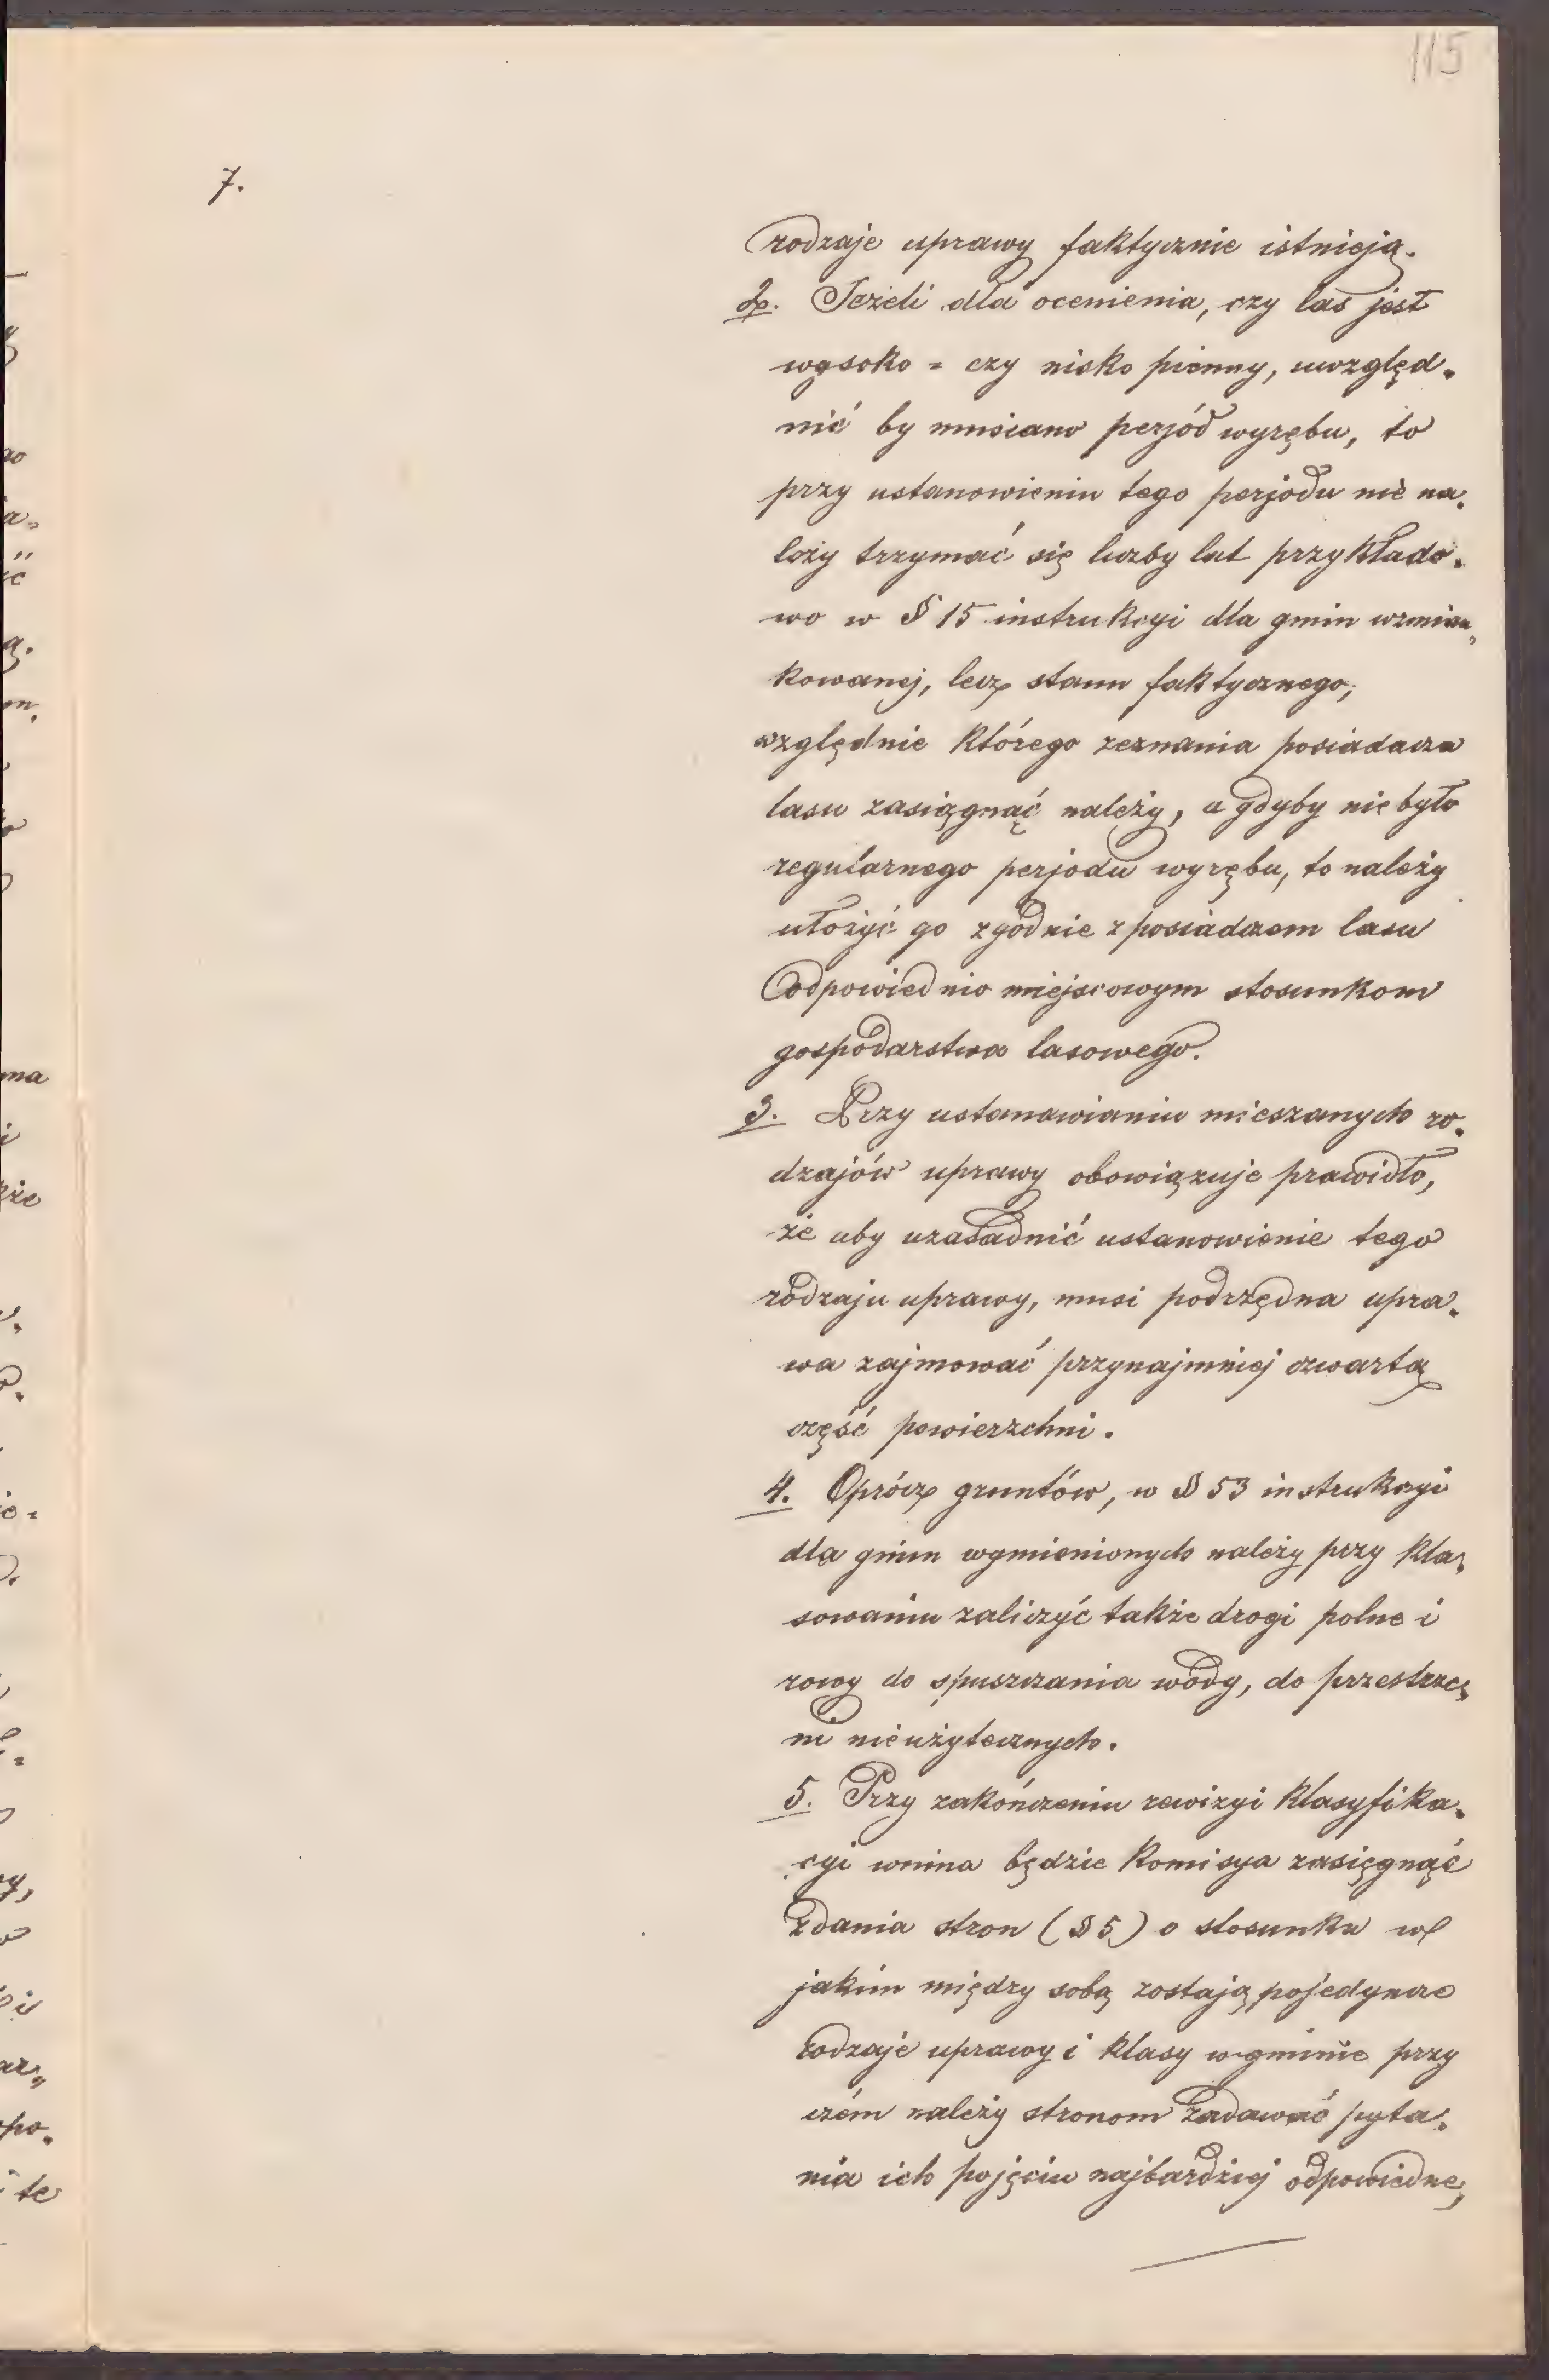 115
7.
rodzaje uprawy faktycznie istnieją.
2. Jeżeli dla ocenienia, czy las jest
wysoko = czy nisko pienny, uwzględ-
nić by musiano perjód wyrębu, to
przy ustanowieniu tego perjodu nie na-
leży trzymać się liczby lat przykłado-
wo w § 15 instrukcyi dla gmin wzmian-
kowanej, lecz stanu faktycznego,
względnie którego zeznania posiadacza
lasu zasięgnąć należy, a gdyby nie było
regularnego perjodu wyrębu, to należy
ułożyć go zgodnie z posiadaczem lasu
odpowiednio miejscowym stosunkom
gospodarstwa lasowego.
3. Przy ustanawianiu mieszanych ro-
dzajów uprawy obowiązuje prawidło,
że aby uzasadnić ustanowienie tego
rodzaju uprawy, musi podrzędna upra-
wa zajmować przynajmniej czwartą
część powierzchni.
4. Oprócz gruntów, w § 53 instrukcyi
dla gmin wymienionych należy przy kla-
sowaniu zaliczyć także drogi polne i
rowy do spuszczania wody, do przestrze-
ni nieużytecznych.
5. Przy zakończeniu rewizyi klasyfika-
cyi winna będzie Komisya zasięgnąć
zdania stron (§ 5) o stosunku w
jakim między sobą zostają pojedyncze
rodzaje uprawy i klasy w gminie przy
czém należy stronom zadawać pyta-
nia ich pojęciu najbardziej odpowiedne,